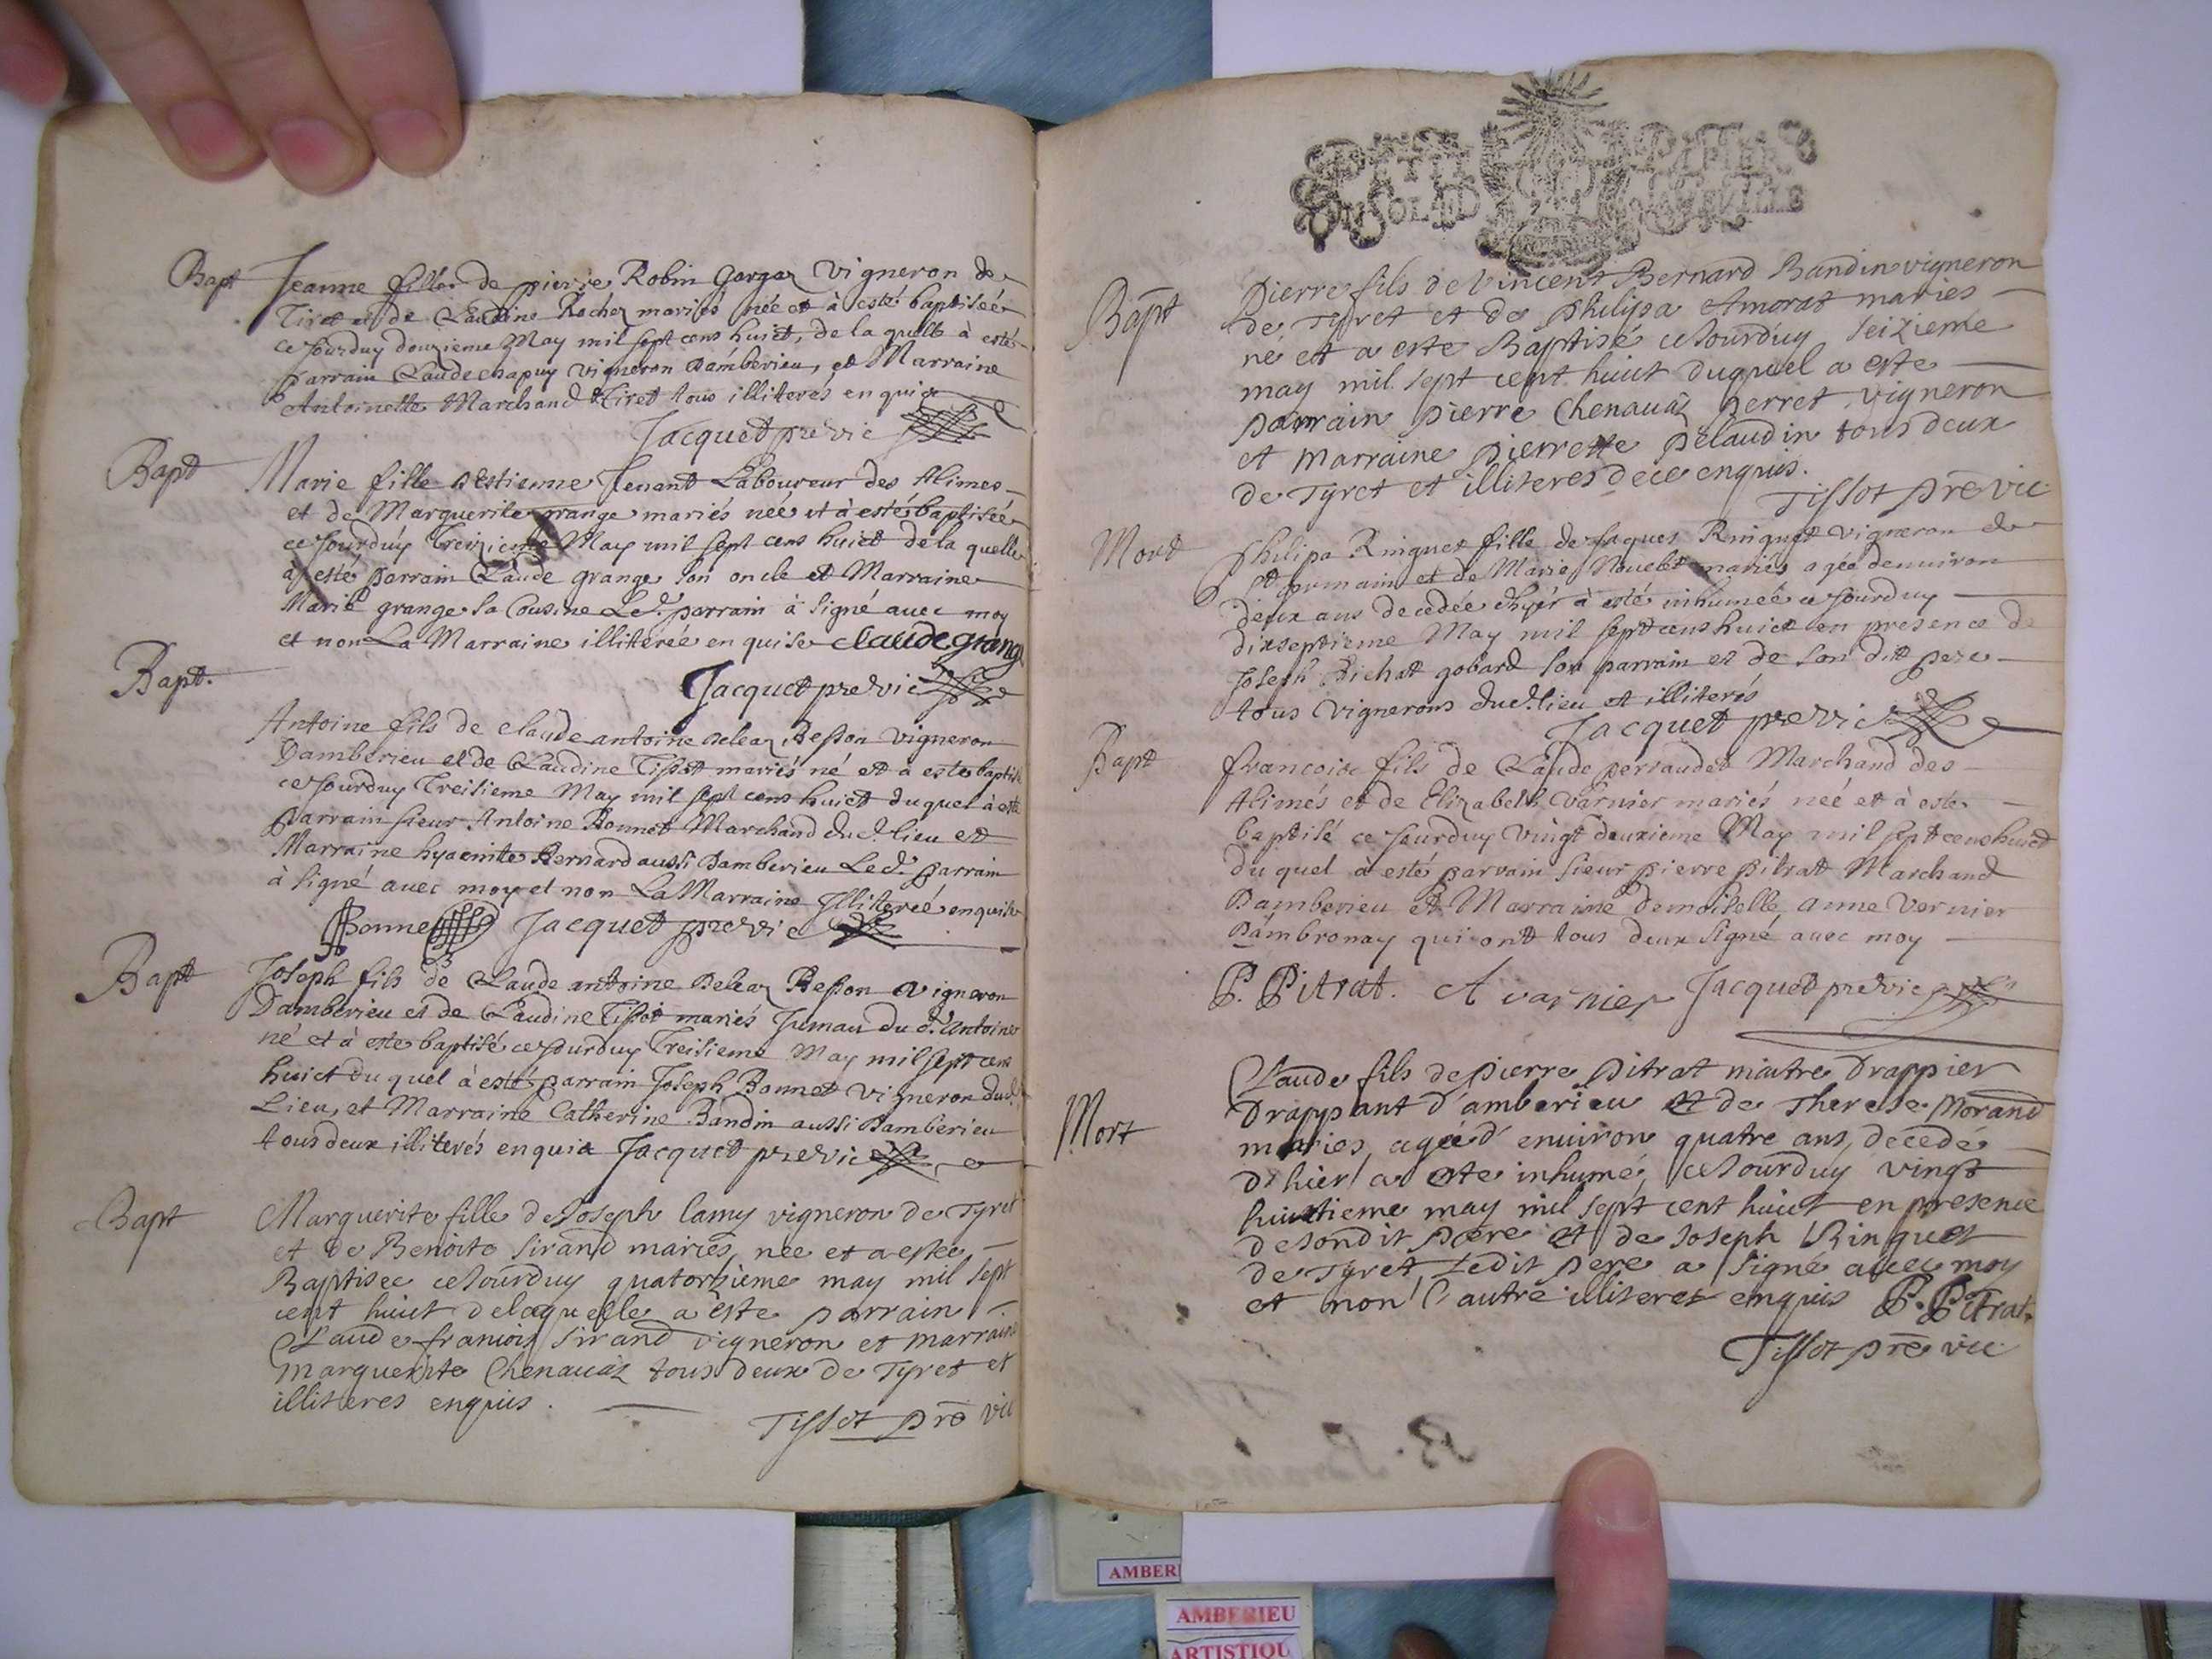 Bapt
Jeanne fille de pierre Robin gargaz vigneron de
Tiret et de Claudine Rochez mariés née et à esté baptisée
ce Jourduy douzieme May mil sept cens huict, de la quelle à esté
parrain Claude chapuy vigneron Damberieu, et Marraine
Antoinette Marchand de Tiret tous illiterés enquis
Jacquet pre vic
Bapt
Marie fille d'Estienne Tenant Laboureur des Alimes
et de Marguerite grange mariés née et à esté baptisée
ce Jourduy Treizieme May mil sept cens huict de la quelle
à esté parrain Claude grange son oncle et Marraine
Marie grange sa Cousine Led. parrain à signé avec moy
et non La Marraine illiterée enquise claude grange
Jacquet pre vic
Bapt.
Antoine fils de claude antoine deleaz Besson vigneron
Damberieu et de Claudine Tissot mariés né et à esté baptisé
ce Jourduy Treisieme May mil sept cens huict duquel à esté
parrain sieur Antoine Bonnet Marchand dud. lieu et
Marraine hyacinte Bernard aussi Damberieu Led. parrain
à signé avec moy et non La Marraine Illiterée enquise
Bonnet Jacquet pre vic
Bapt
Joseph fils de Claude antoine deleaz Besson vigneron
Damberieu et de Claudine Tissot mariés Jumau dud. Antoine
né et à esté baptisé ce Jourduy Treisieme May mil sept cens
huict duquel à esté parrain Joseph Bonnet vigneron dud.
Lieu, et Marraine Catherine Bandin aussi Damberieu
tous deux illiterés enquis Jacquet pre vic
Bapt
Marguerite fille de Joseph lamy vigneron de Tyret
et de Benoite Sirand mariés, née et a estee
Baptisee ceJourduy quatorzieme may mil sept
cent huict delaquelle a este parrain
Claude francois Sirand vigneron et marraine
Marguerite Chenavaz tous deux de Tyret et
illiteres enquis.
Tissot pre vic
PETIT PAPIER
Bapt
Pierre fils de Vincent Bernard Bandin vigneron
de Tyret et de Philipa Amorat maries
né et a este Baptisé ceJourduy seizieme
may mil sept cent huict duquel a este
parrain pierre Chenavaz perret vigneron
et marraine pierrette Pelaudin tous deux
de Tyret et illiteres dece enquis.
Tissot pre vic
Mort
Philipa Ringuet fille de Jaques Ringuet vigneron de
St germain et de Marie Nouelet mariés agée denuiron
deux ans decedée d'hyér à esté inhumée ce Jourduy
dixseptieme May mil sept cens huict en presence de
Joseph Bichat gobard son parrain et de son dit pere
tous vignerons dud. lieu et illiterés
Jacquet pre vic
Bapt
francois fils de Claude perraudet Marchand des
Alimés et de Elizabeth Varnier mariés neé et à esté
baptisé ce Jourduy vingt deuxieme May mil sept cens huict
du quel à esté parrain sieur pierre pitrat Marchand
Damberieu et Marraine demoiselle anne vernier
Dambronay qui ont tous deux signé avec moy
P. Pitrat. A varnier Jacquet pre vic
Mort
Claude fils de pierre Pitrat maitre Drappier
Drappant d'amberieu et de Therese Morand
maries, agée d'environ quatre ans, decedé
d'hier a este inhumé, ceJourduy vingt
huictieme may mil sept cent huict en presence
desondit pere et de Joseph Ringuet
de Tyret Ledit pere a signé avec moy
et non l'autre illiteres enquis P. Pitrat.
Tissot pre vic
AMBERI
AMBERIEU
ARTISTIQU